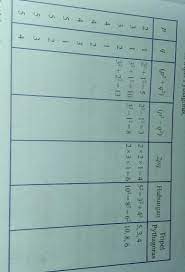 p q (p² + q²) (p² - q²) 2pq Hubungan Tripel Pythagoras
2 1 2² + 1² = 5 2² - 1² = 3 2 × 2 × 1 = 4 5² = 3² + 4² 5, 3, 4
3 1 3² + 1² = 10 3² - 1² = 8 2 × 3 × 1 = 6 10² = 8² + 6² 10, 8, 6
3 2 3² + 2² = 13
4 1
4 2
4 3
5 1
5 2
5 3
5 4